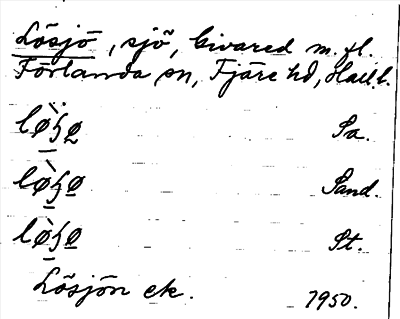 Lösjö, sjö, Givared m. fl.
Förlanda sn, Fjäre hd, Hall. l.
Sa.
Sand.
St.
Lösjön ek.
1950.